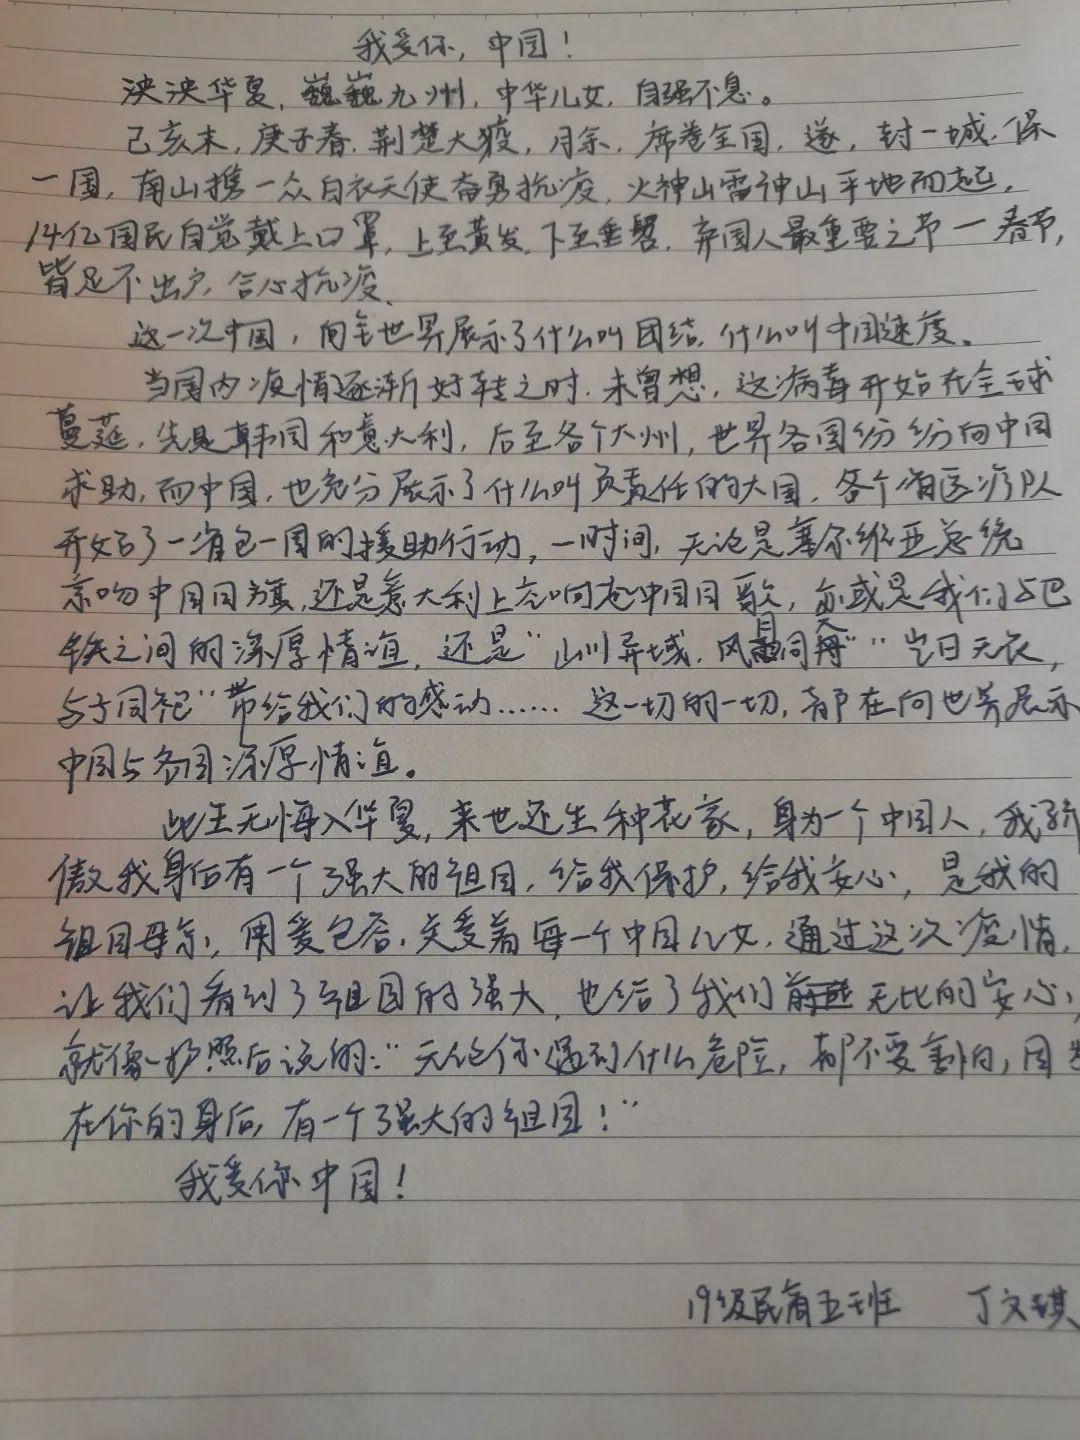 我爱你，中国！
泱泱华夏，巍巍九州，中华儿女，自强不息。
己亥末，庚子春，荆楚大疫，月余，席卷全国，遂，封一城，保
一国，南山携一众白衣天使奋勇抗疫，火神山雷神山平地而起，
14亿国民自觉戴上口罩，上至黄发，下至垂髫，弃国人最重要之节一春节，
皆足不出户，合心抗疫、
这一次中国，向全世界展示了什么叫团结，什么叫中国速度。
当国内疫情逐渐好转之时，未曾想，这病毒开始在全球
蔓延，先是韩国和意大利，后至各个大州，世界各国纷纷向中国
求助，而中国，也充分展示了什么叫负责任的大国，各个省医疗队
开始了一省包一国的援助行动，一时间，无论是塞尔维亚总统
亲吻中国国旗，还是意大利上空响起中国国歌，亦或是我们与巴
铁之间的深厚情谊，还是"山川异域，风月同天""岂曰无衣，
与子同袍"带给我们的感动……这一切的一切，都在向世界展示
中国与各国深厚情谊。
此生无悔入华夏，来世还生种花家，身为一个中国人，我骄
傲我身后有一个强大的祖国，给我保护，给我安心，是我的
祖国母亲，用爱包容，关爱着每一个中国儿女，通过这次疫情，
让我们看到了祖国的强大，也给了我们无比的安心，
就像一妙照后说的："无论你遇到什么危险，都不要害怕，因为
在你的身后，有一个强大的祖国！"
我爱你中国！
19级民商五班 丁文琪